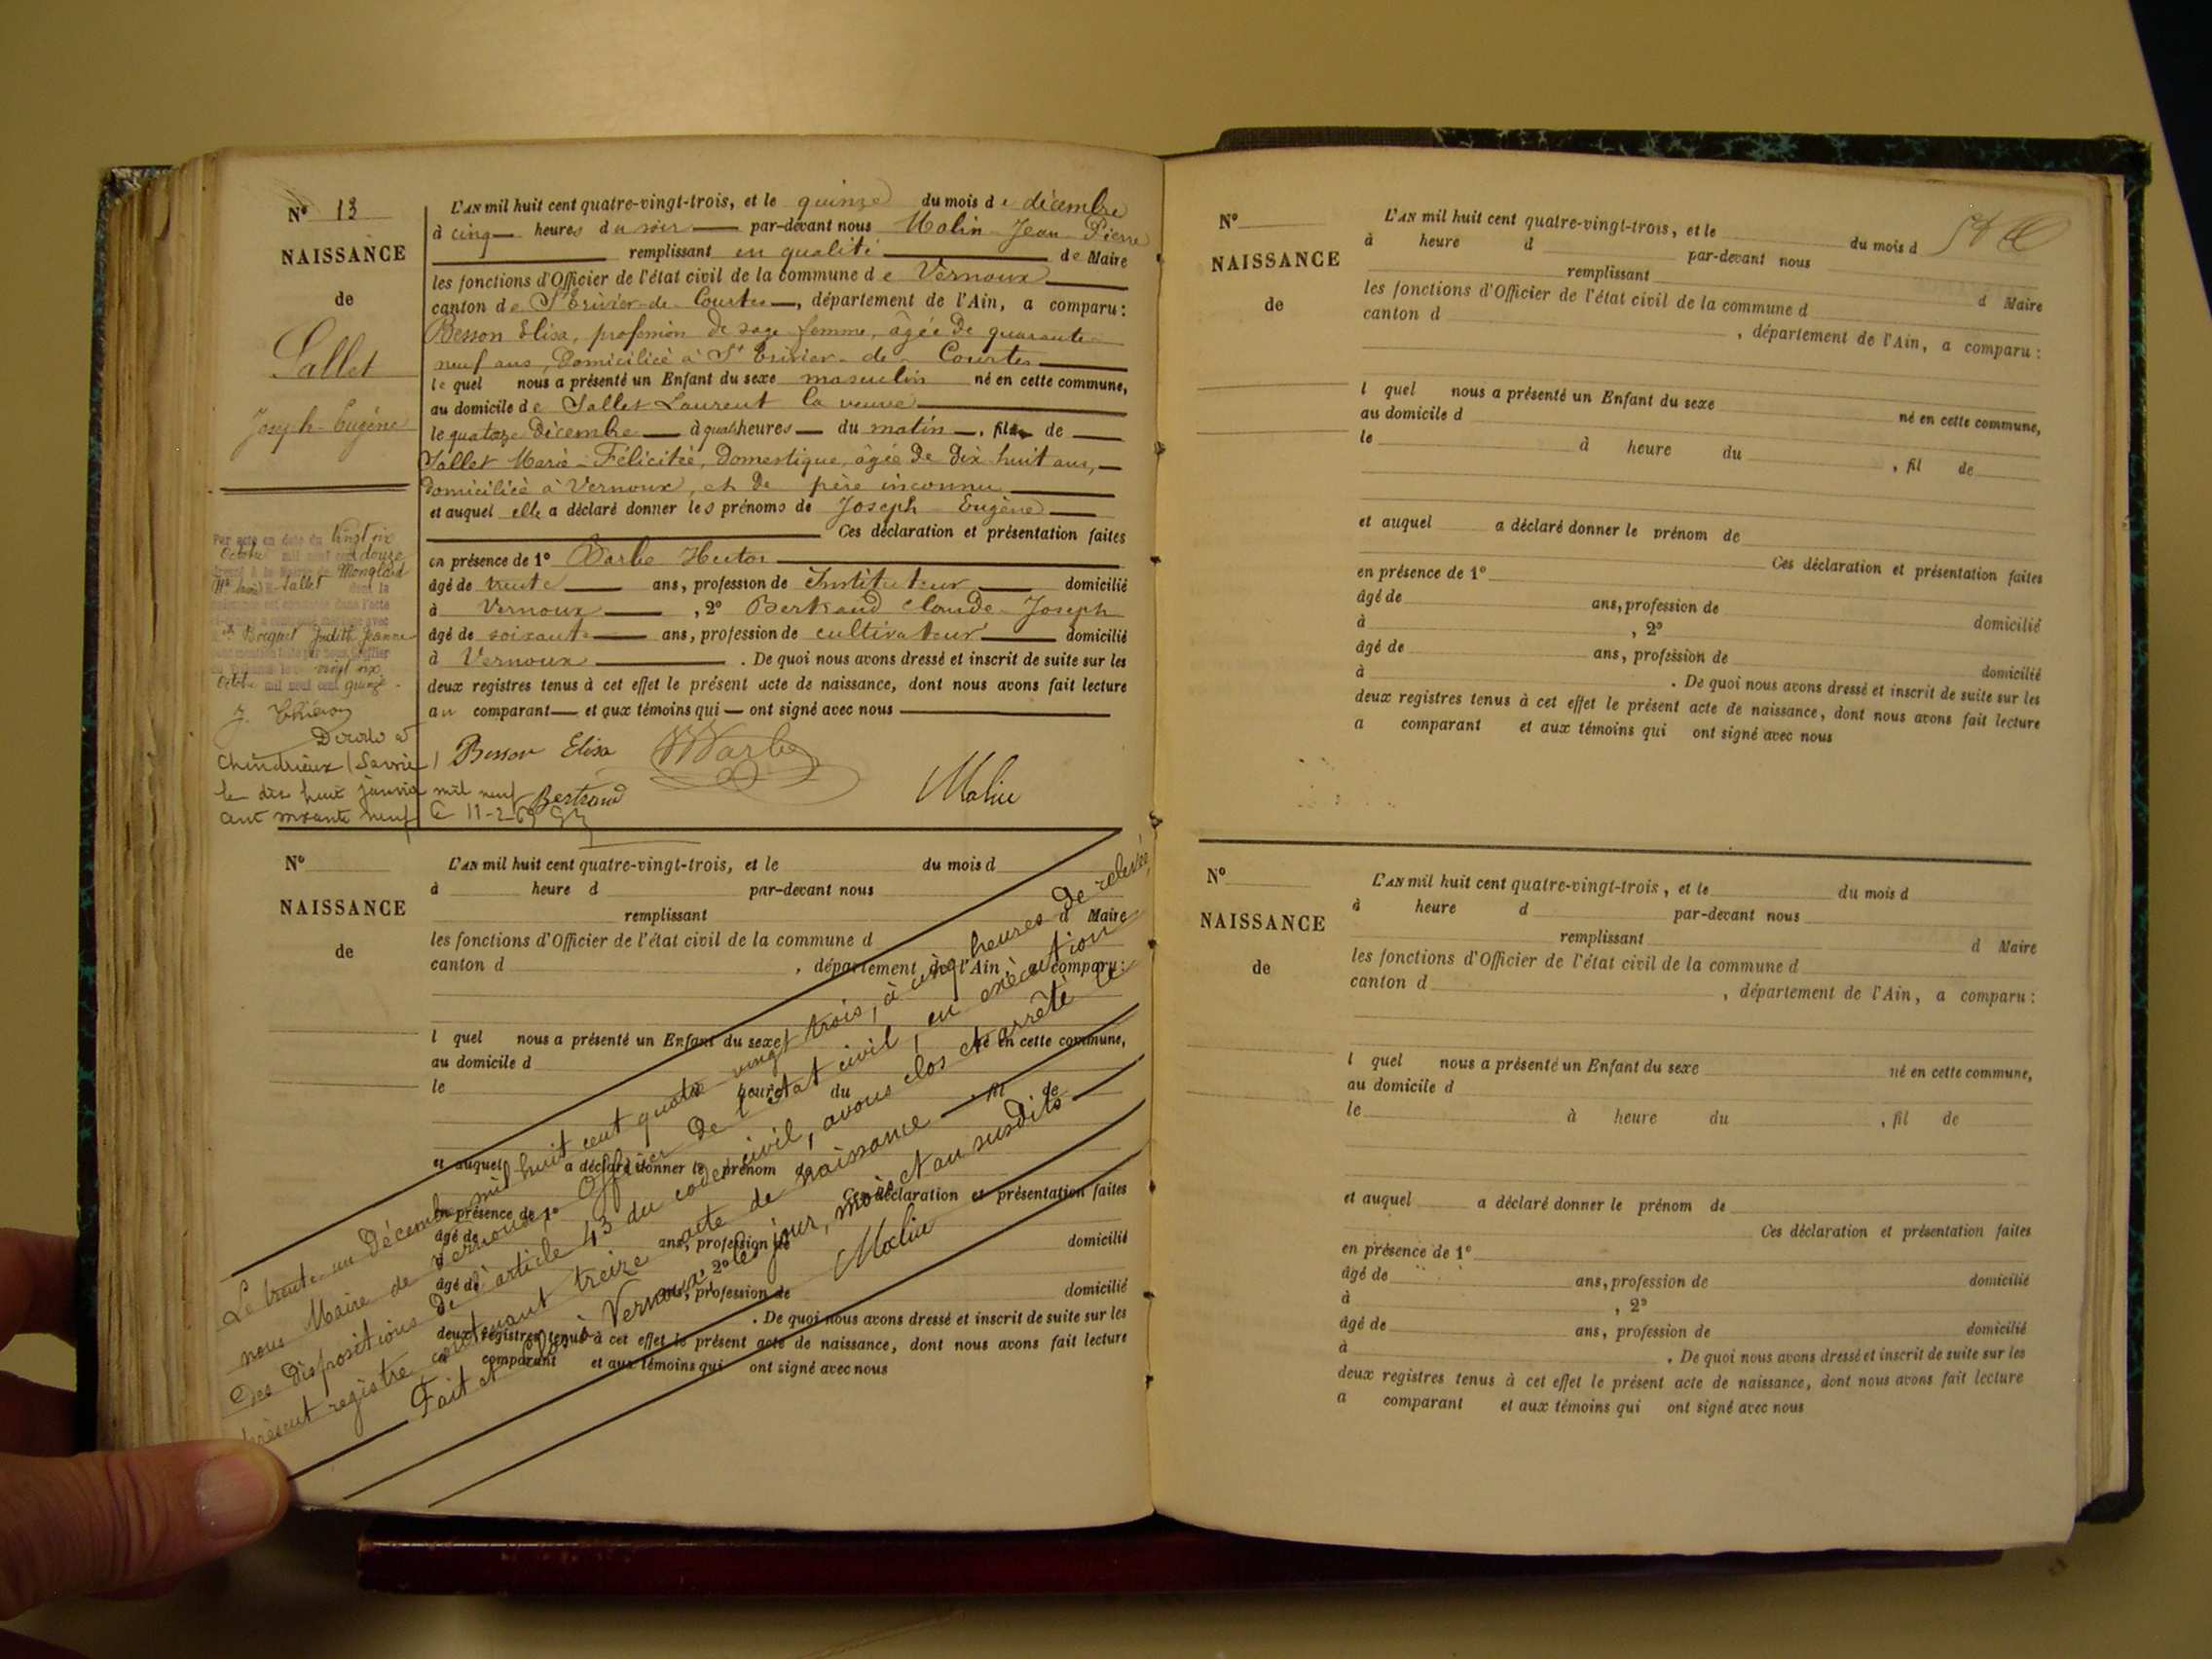 N° 13
NAISSANCE
de
Sallet
Joseph-Eugène
L'AN mil huit cent quatre-vingt-trois, et le quinze du mois de décembre
à cinq heures du soir par-devant nous Malin Jean Pierre
remplissant en qualité de Maire
les fonctions d'Officier de l'état civil de la commune de Vernoux
canton de St Trivier-de-Courtes, département de l'Ain, a comparu:
Besson Elisa, profession de sage femme, âgée de quarante-
neuf ans, domiciliée à St Trivier-de-Courtes
lequel nous a présenté un Enfant du sexe masculin né en cette commune,
au domicile de Sallet Laurent la veuve
le quatorze décembre à quatre heures du matin, fils de
Sallet Marie-Félicitée, domestique, âgée de dix huit ans,
domiciliée à Vernoux, et de père inconnu
et auquel elle a déclaré donner les prénoms de Joseph Eugène
Ces déclaration et présentation faites
en présence de 1° Barbe Hector
âgé de trente ans, profession de Instituteur domicilié
à Vernoux, 2° Bertrand Claude-Joseph
âgé de soixante ans, profession de cultivateur domicilié
à Vernoux. De quoi nous avons dressé et inscrit de suite sur les
deux registres tenus à cet effet le présent acte de naissance, dont nous avons fait lecture
au comparant et aux témoins qui ont signé avec nous
Besson Elisa Barbe
Bertrand Malin
Par acte en date du vingt six
Octobre mil neuf cent douze
Sallet dont la
naissance est constatée dans l'acte
avec
Bocquet Judith Jeanne
vingt six
Octobre mil neuf cent quinze
Décédé à
Chindrieux (Savoie)
le dix huit janvier mil neuf
cent soixante neuf
Le 11-2-69
N°
NAISSANCE
de
L'AN mil huit cent quatre-vingt-trois, et le du mois d
à heure d par-devant nous
remplissant d Maire
les fonctions d'Officier de l'état civil de la commune d
canton d , département de l'Ain, a comparu:
l quel nous a présenté un Enfant du sexe né en cette commune,
au domicile d
le à heure du , fil de
et auquel a déclaré donner le prénom de
Ces déclaration et présentation faites
en présence de 1°
âgé de ans, profession de domicilié
à , 2°
âgé de ans, profession de domicilié
à . De quoi nous avons dressé et inscrit de suite sur les
deux registres tenus à cet effet le présent acte de naissance, dont nous avons fait lecture
a comparant et aux témoins qui ont signé avec nous
Le trente-un Décembre mil huit cent quatre vingt trois, à cinq heures de relevée,
nous Maire de Vernoux Officier de l'état civil, en exécution
des dispositions de l'article 43 du code civil, avons clos et arrêté ce
présent registre contenant treize acte de naissance
Fait et clos à Vernoux, les jour, mois et an susdits
Malin
N°
NAISSANCE
de
L'AN mil huit cent quatre-vingt-trois, et le du mois d
à heure d par-devant nous
remplissant d Maire
les fonctions d'Officier de l'état civil de la commune d
canton d , département de l'Ain, a comparu:
l quel nous a présenté un Enfant du sexe né en cette commune,
au domicile d
le à heure du , fil de
et auquel a déclaré donner le prénom de
Ces déclaration et présentation faites
en présence de 1°
âgé de ans, profession de domicilié
à , 2°
âgé de ans, profession de domicilié
à . De quoi nous avons dressé et inscrit de suite sur les
deux registres tenus à cet effet le présent acte de naissance, dont nous avons fait lecture
a comparant et aux témoins qui ont signé avec nous
N°
NAISSANCE
de
L'AN mil huit cent quatre-vingt-trois, et le du mois d
à heure d par-devant nous
remplissant d Maire
les fonctions d'Officier de l'état civil de la commune d
canton d , département de l'Ain, a comparu:
l quel nous a présenté un Enfant du sexe né en cette commune,
au domicile d
le à heure du , fil de
et auquel a déclaré donner le prénom de
Ces déclaration et présentation faites
en présence de 1°
âgé de ans, profession de domicilié
à , 2°
âgé de ans, profession de domicilié
à . De quoi nous avons dressé et inscrit de suite sur les
deux registres tenus à cet effet le présent acte de naissance, dont nous avons fait lecture
a comparant et aux témoins qui ont signé avec nous